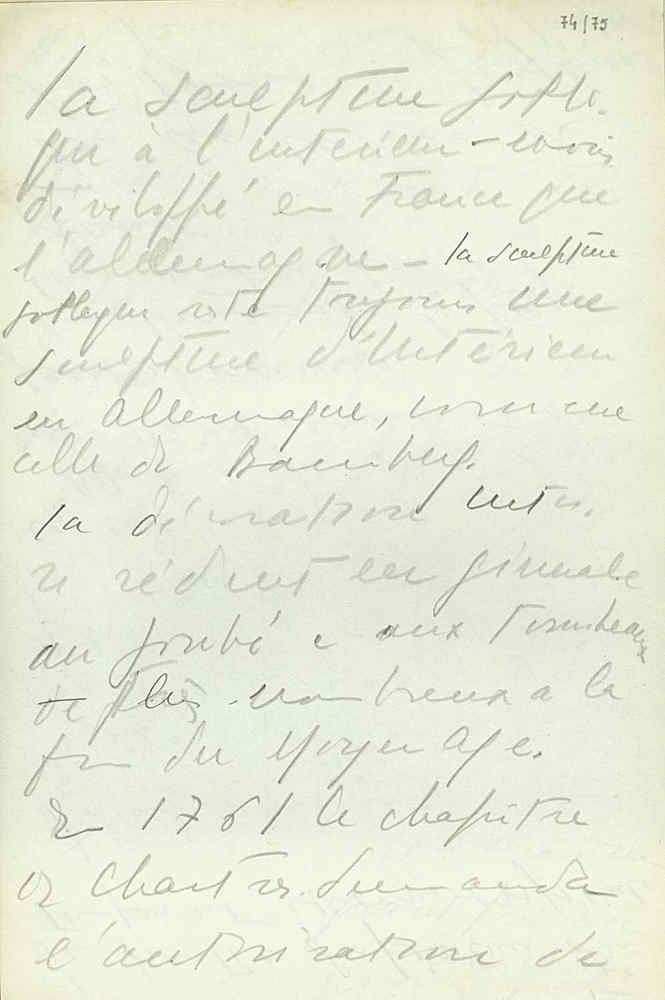 74/75
la sculpture gothi-
que à l'interieur - moins
développé en France que
l'allemagne - la sculpture
gothique reste toujours une
sculpture d'intérieur
en allemagne, comme
celle de Bamberg.
la décoration inter.
se réduit en générale
au jubé e aux tombeaux
de plus nombreux a la
fin du Moyen Age.
En 1761 le chapitre
de Chartres demanda
l'autorisation de